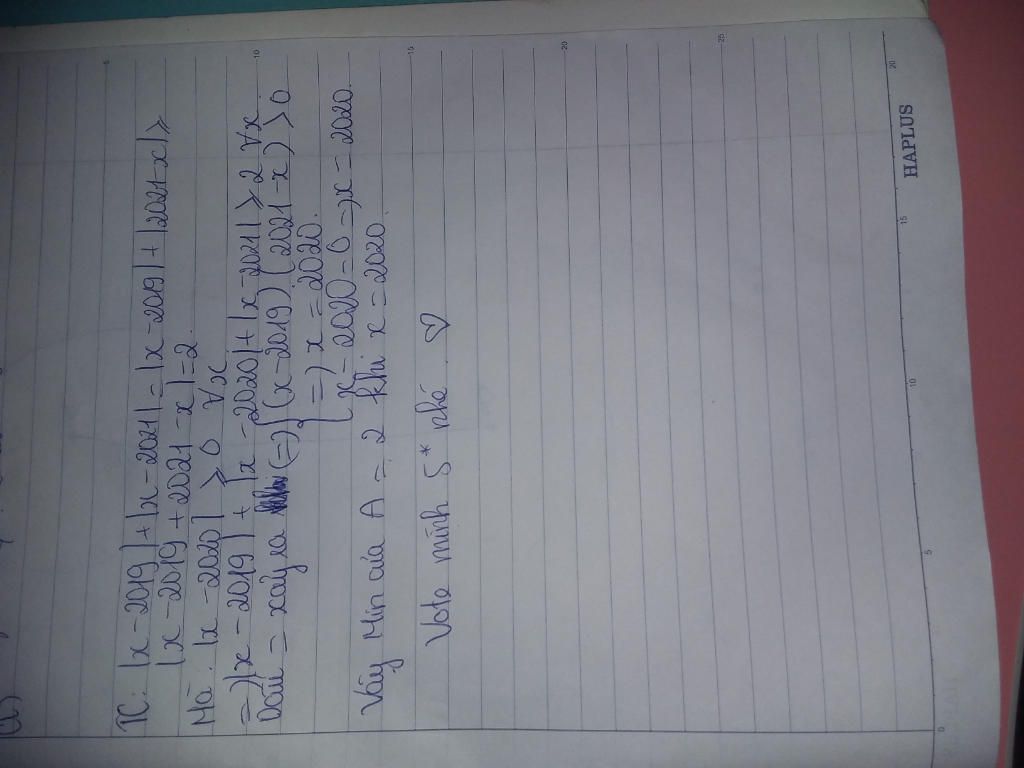 a)
TC: |x-2019|+|x-2021|=|x-2019|+|2021-x|≥
|x-2019+2021-x|=2.
Mà: |x-2020|≥0 ∀x
=>|x-2019|+|x-2020|+|x-2021|≥2 ∀x.
Dấu = xảy ra (=>{(x-2019)(2021-x)≥0
=> x=2020.
x-2020=0=>x=2020.
Vậy Min của A=2 khi x=2020.
Vote mình 5* nhé. ♡
5
10
15
20
25
0
5
10
15
20
HAPLUS